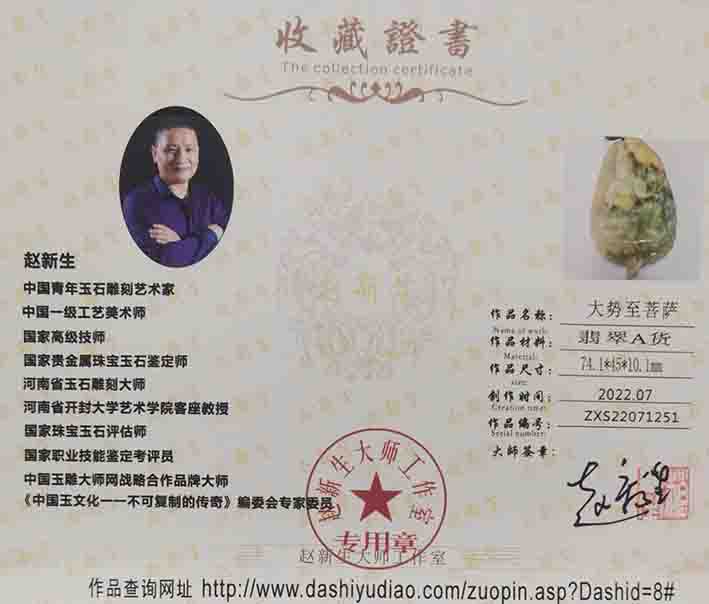 收藏證書
The collection certificate
赵新生
中国青年玉石雕刻艺术家
中国一级工艺美术师
国家高级技师
国家贵金属珠宝玉石鉴定师
河南省玉石雕刻大师
河南省开封大学艺术学院客座教授
国家珠宝玉石评估师
国家职业技能鉴定考评员
中国玉雕大师网战略合作品牌大师
《中国玉文化一一不可复制的传奇》编委会专家委员
作品名标: 大势至菩萨
Name of work:
作品材料: 翡翠A货
Material:
作品尺寸: 74.1*45*10.1mm
size:
创作时间: 2022.07
Creation time:
作品编号: ZXS22071251
Serial number:
大師签章: 赵新生
赵新生大师工作室
专用章
赵新生大师工作室
作品查询网址 http://www.dashiyudiao.com/zuopin.asp?Dashid=8#